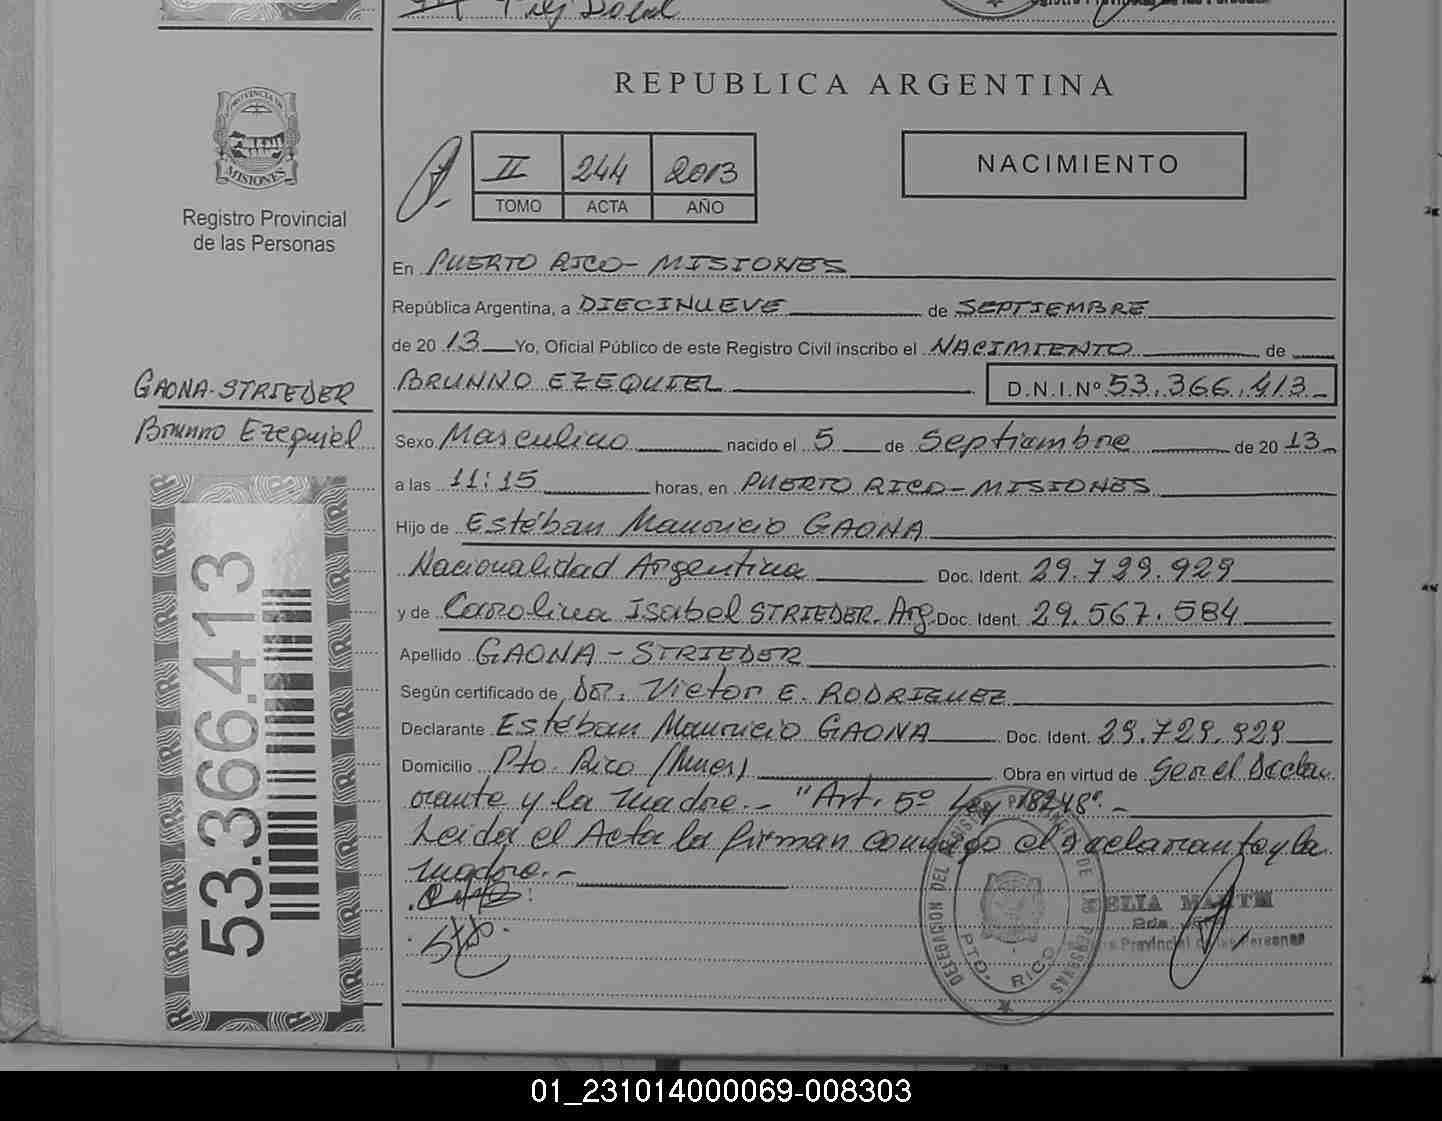 REPUBLICA ARGENTINA
PROVINCIA DE
MISIONES
Registro Provincial
de las Personas
II 244 2013
TOMO ACTA AÑO
NACIMIENTO
En PUERTO RICO- MISIONES
República Argentina, a DIECINUEVE de SEPTIEMBRE
de 20 13 Yo, Oficial Público de este Registro Civil inscribo el NACIMIENTO de
BRUNNO EZEQUIEL D.N.I.Nº 53.366.413
GAONA-STRIEDER
Brunno Ezequiel
Sexo Masculino nacido el 5 de Septiembre de 20 13
a las 11:15 horas, en PUERTO RICO-MISIONES
Hijo de Estéban Mauricio GAONA
Nacionalidad Argentina Doc. Ident. 29.729.929
y de Carolina Isabel STRIEDER. Arg. Doc. Ident. 29.567.584
Apellido GAONA - STRIEDER
Según certificado de Dr. Victor E. RODRIGUEZ
Declarante Estéban Mauricio GAONA Doc. Ident. 29.729.929
Domicilio Pto. Rico (Mnes) Obra en virtud de ser el Decla
rante y la madre.- "Art. 5º Ley 18248".-
Leida el Acta la firman conmigo el declarante y la
madre.-
53.366.413
DELEGACION DEL REGISTRO DE LAS PERSONAS
PTO. RICO
Provincial de las Personas
01_231014000069-008303